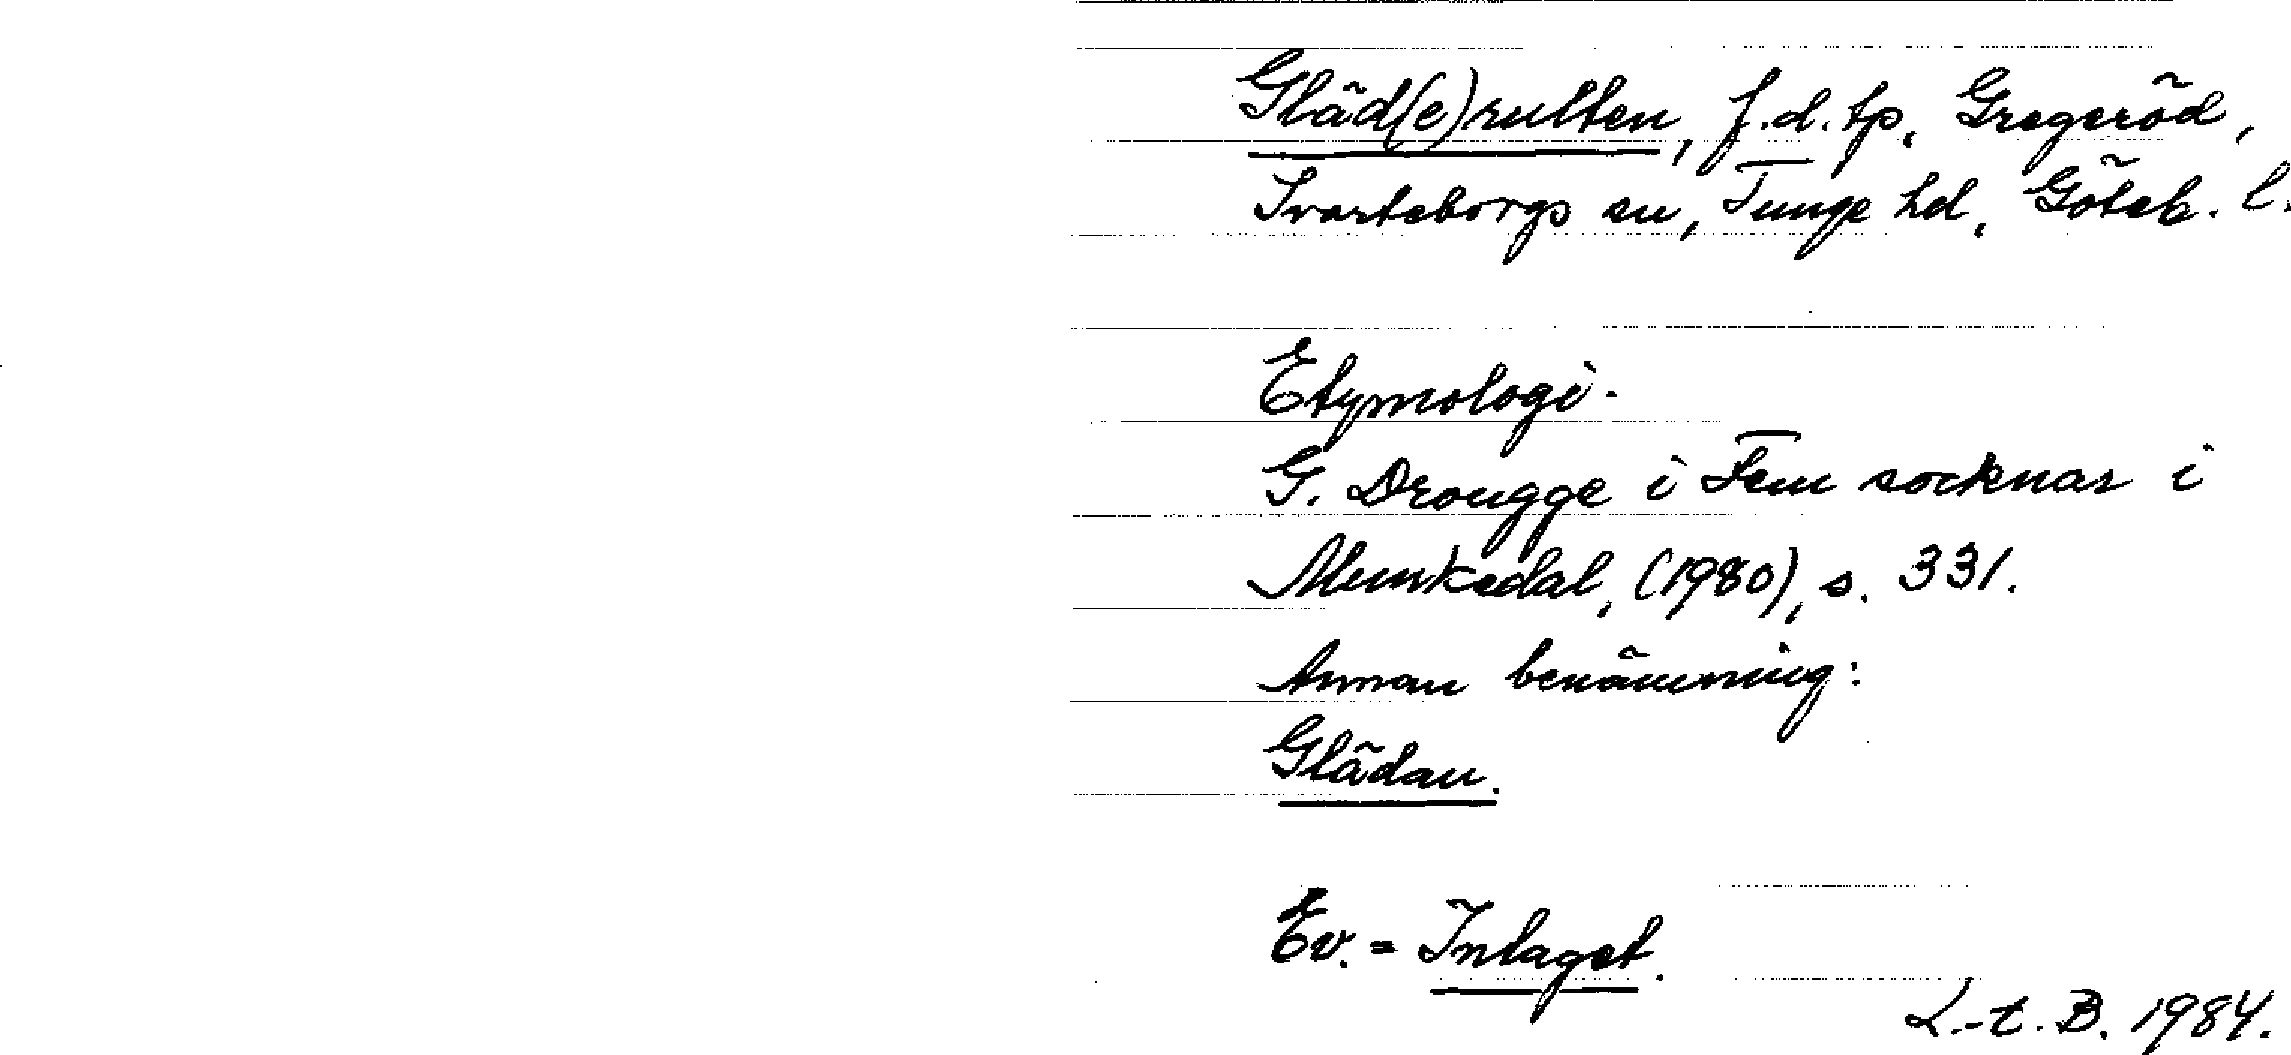 Gläd(e)rulten, f.d. tp, Gregeröd,
Svarteborgs sn, Tunge hd, Göteb. l.
Etymologi.
G. Drougge i Fem socknar i
Munkedal, (1980), s. 331.
Annan benämning:
Glädan.
Ev. = Intaget.
L.-t. B. 1984.